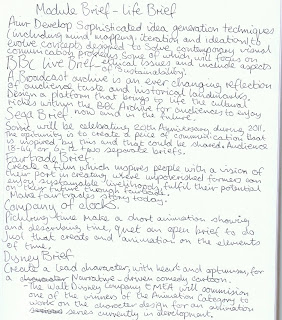 Module Brief - Life Brief
Aim: Develop Sophisticated idea generation techniques
(including mind mapping, iteration and ideation) to
evolve concepts designed to solve contemporary visual
communication problems some of which will focus on
ethical issues and include aspects
BBC Live Brief of sustainability.
A Broadcast archive is an ever changing reflection
of audience taste and historical landmarks.
Design a platform that brings to life the cultural
riches within the BBC Archive for audiences to enjoy
now and in the future.
Sega Brief
Sonic will be celebrating 20th Anniversary during 2011.
The opportunity is to create a piece of communication that
is inspired by this and that could be shared. Audience
18-24 or 6-12 two separate briefs.
Fairtrade Brief
Create a film which inspires people with a vision of
their part in creating world in which farmers can
enjoy sustainable livelihoods, fulfil their potential
on their future through Fairtrade.
Make fairtrade's story today.
Company of clocks.
Picklous time make a short animation showing
and describing time, quiet an open brief to do
Just that create and animation on the elements
of time.
Disney Brief
Create a lead character with heart and optimism, for
a narrative - driven comedy cartoon.
- The Walt Disney Company EMEA will commision
one of the winners of the Animation Category to
work on the character design for an animation
series currently in development.